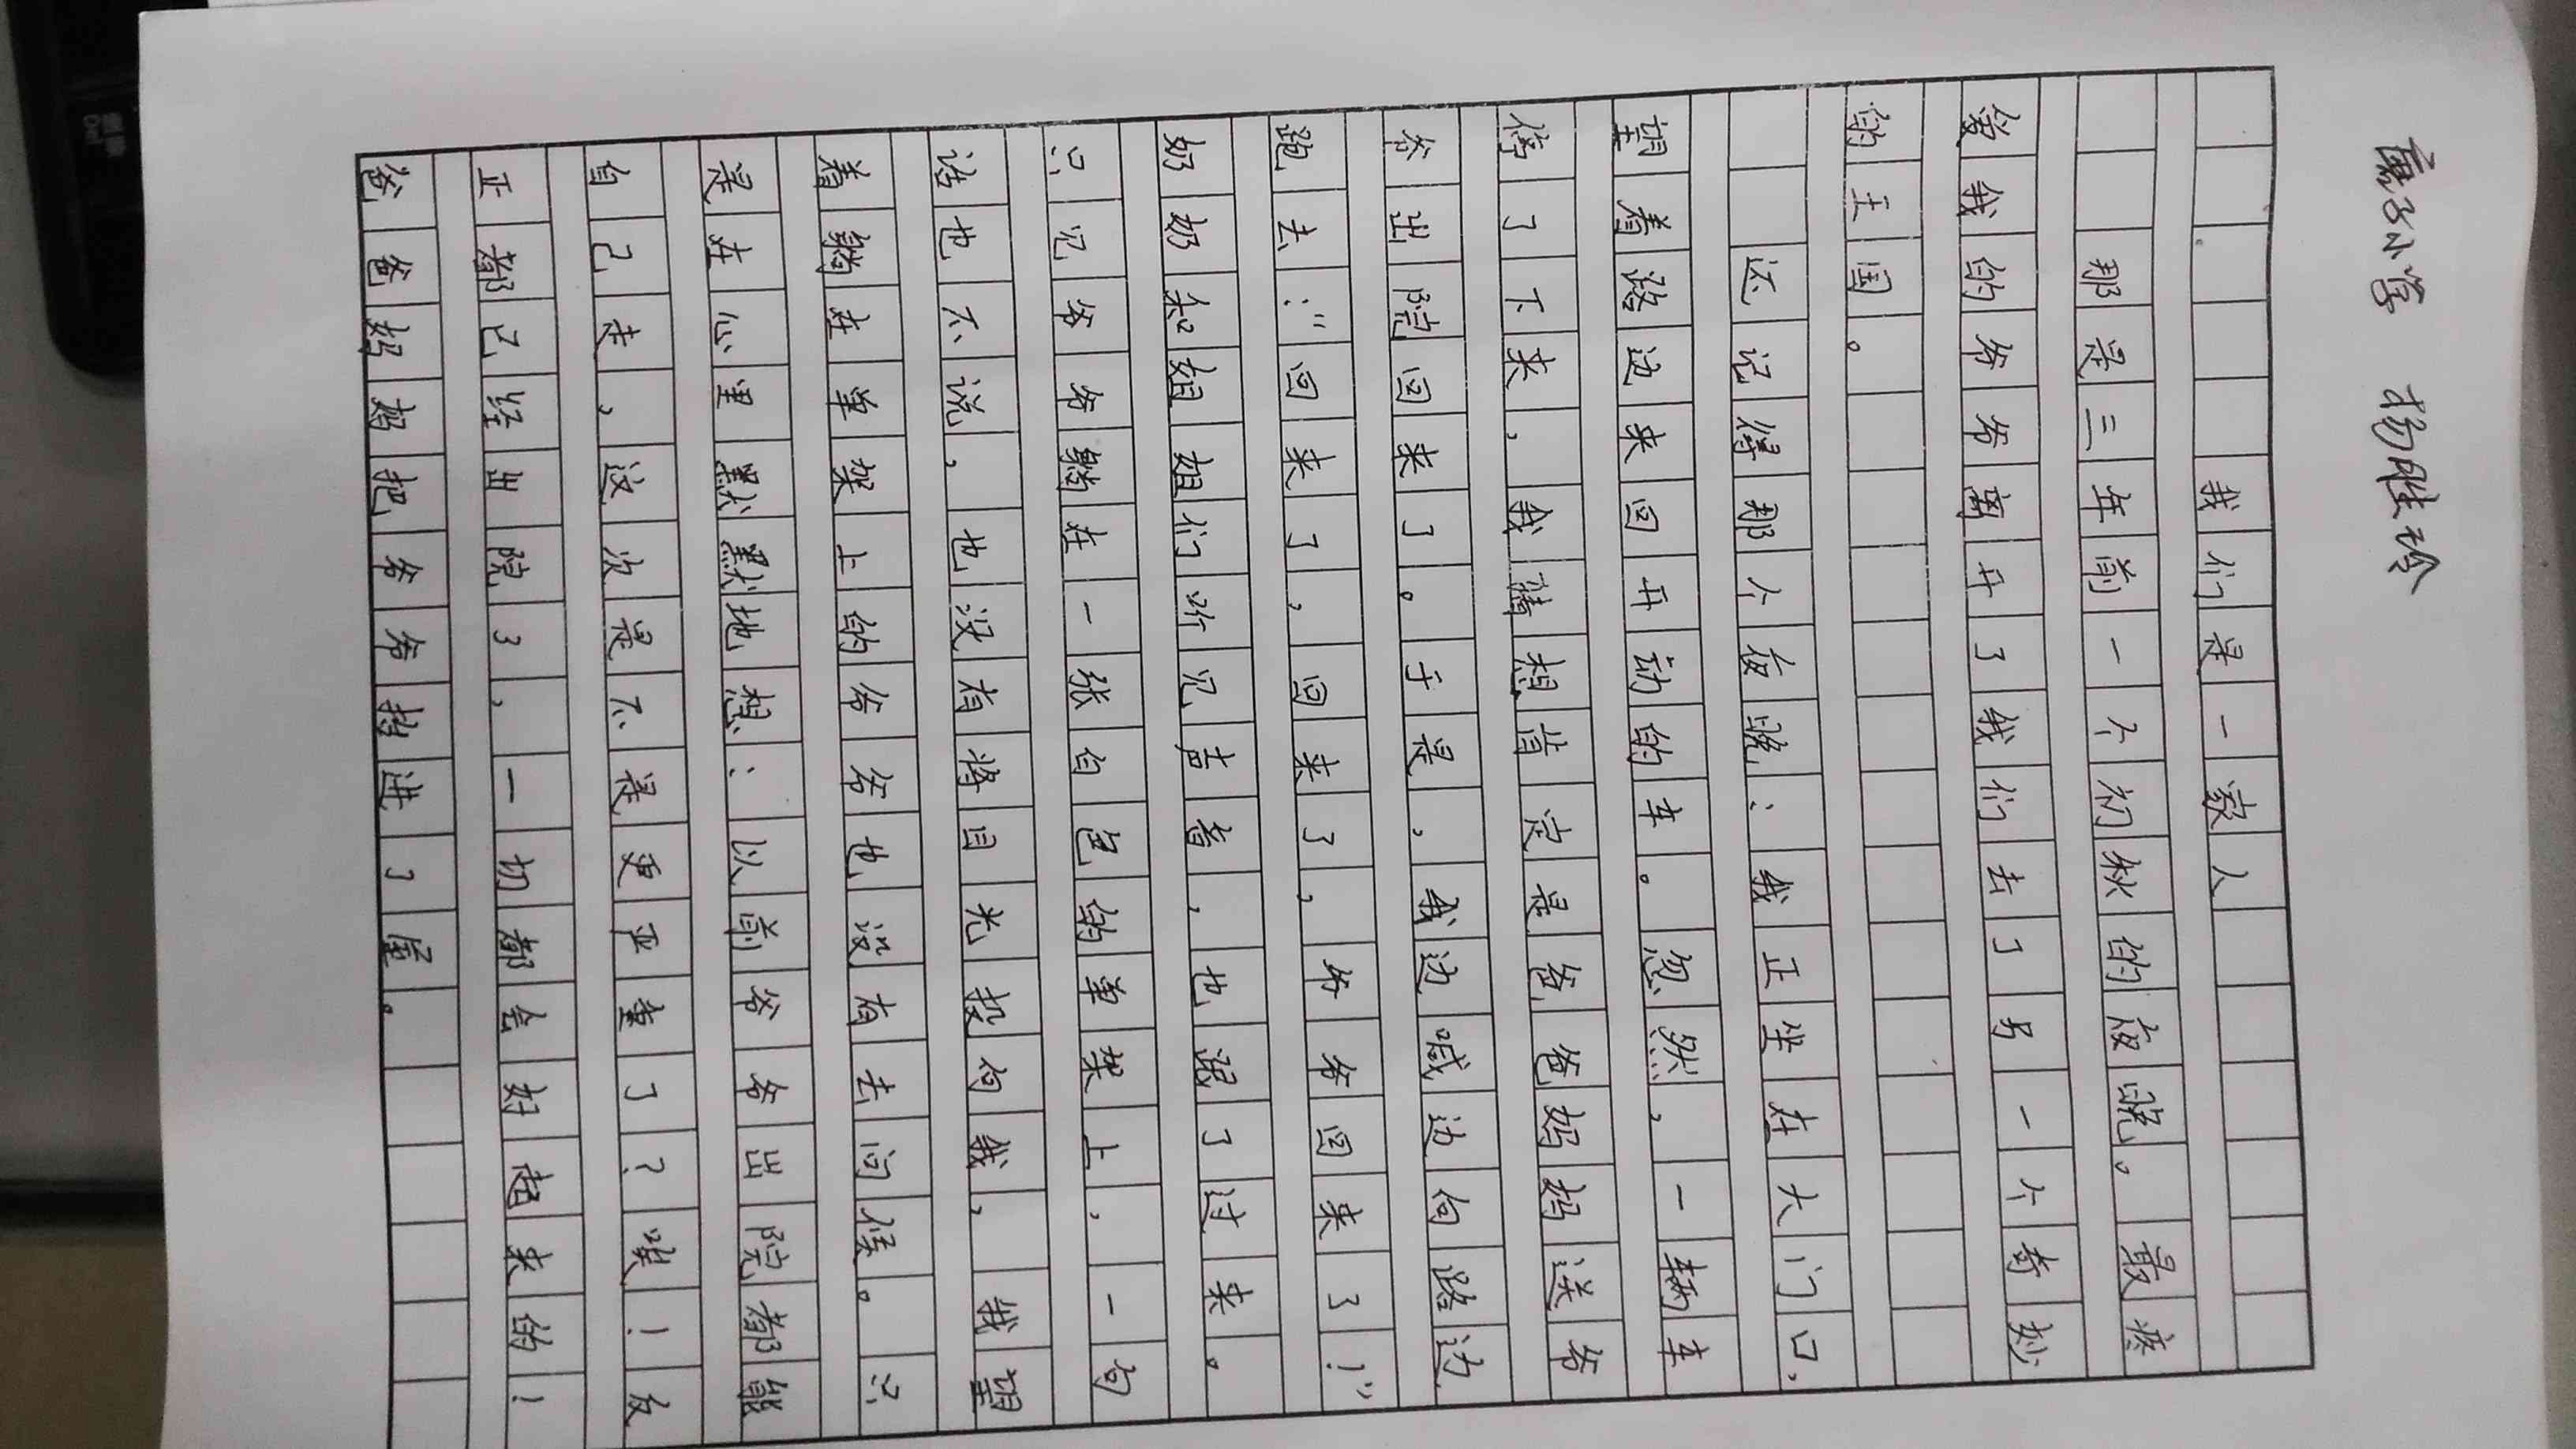 小学 杨胜玲
我们是一家人
那是三年前一个初秋的夜晚。最疼
爱我的爷爷离开了我们去了另一个奇妙
的王国。
还记得那个夜晚：我正坐在大门口，
望着路边来回开动的车。忽然，一辆车
停了下来，我猜想肯定是爸爸妈妈送爷
爷出院回来了。于是，我边喊边向路边
跑去：“回来了，回来了，爷爷回来了！”
奶奶和姐姐们听见声音，也跟了过来。
只见爷爷躺在一张白色的单架上，一句
话也不说，也没有将目光投向我，我望
着躺在单架上的爷爷也没有去问候。只
是在心里默默地想：以前爷爷出院都能
自己走，这次是不是更严重了？唉！反
正都已经出院了，一切都会好起来的！
爸爸妈妈把爷爷抬进了屋。